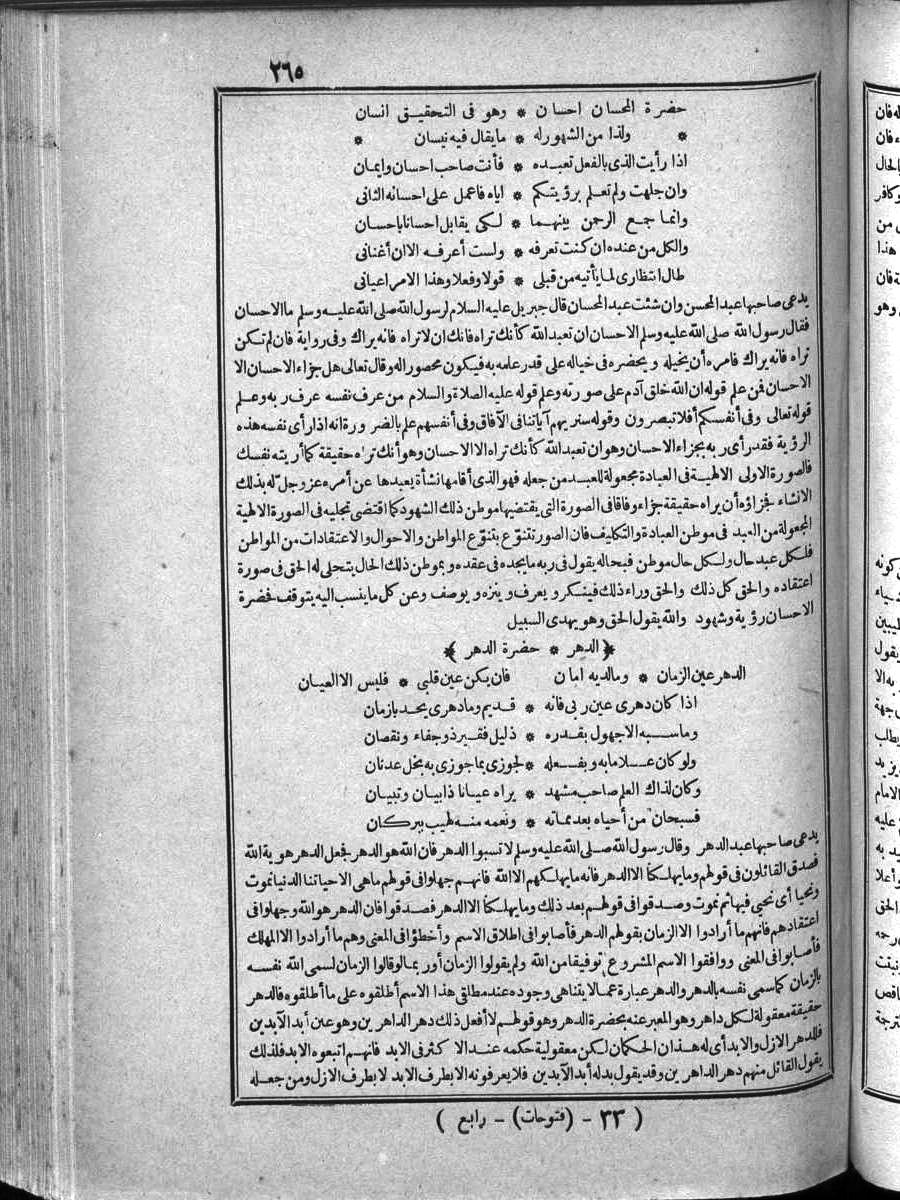 ٢٦٥
حضرة المحسان احسان * وهو فى التحقيق انسان
* ولذا من الشهور له * ما يقال فيه نيسان *
اذا رأيت الذى بالفعل تعبده * فأنت صاحب احسان وايمان
وان جهلت ولم تعلم برؤيتكم * اياه فاعمل على احسانه الثانى
وانما جمع الرحمن بينهما * لكى يقابل احسانا باحسان
والكل من عنده ان كنت تعرفه * ولست أعرفه الا ان أغنانى
طال انتظارى لما يأتيه من قبلى * قولا وفعلا وهذا الامر اعيانى
يدعى صاحبها عبد المحسن وان شئت عبد المحسان قال جبريل عليه السلام لرسول الله صلى الله عليه وسلم ما الاحسان
فقال رسول الله صلى الله عليه وسلم الاحسان ان تعبد الله كأنك تراه فانك ان لا تراه فانه يراك وفى رواية فان لم تكن
تراه فانه يراك فامره أن يخيله ويحضره فى خياله على قدر علمه به فيكون محصورا له وقال تعالى هل جزاء الاحسان الا
الاحسان فمن علم قوله ان الله خلق آدم على صورته وعلم قوله عليه الصلاة والسلام من عرف نفسه عرف ربه وعلم
قوله تعالى وفى أنفسكم أفلا تبصرون وقوله سنريهم آياتنا فى الآفاق وفى أنفسهم علم بالضرورة انه اذا رأى نفسه هذه
الرؤية فقد رأى ربه بجزاء الاحسان وهو ان تعبد الله كأنك تراه الا الاحسان وهو أنك تراه حقيقة كما أريته نفسك
فالصورة الاولى الالهية فى العبادة مجعولة للعبد من جعله فهو الذى أقامها نشأة يعبدها عن أمره عز وجل له بذلك
الانشاء فجزاؤه أن يراه حقيقة جزاء وفاقا فى الصورة التى يقتضيها موطن ذلك الشهود كما اقتضى تجليه فى الصورة الالهية
المجعولة من العبد فى موطن العبادة والتكليف فان الصور تتنوّع بتنوّع المواطن والاحوال والاعتقادات من المواطن
فلكل عبد حال ولكل حال موطن فبحاله يقول فى ربه ما يجده فى عقده وبموطن ذلك الحال يتجلى له الحق فى صورة
اعتقاده والحق كل ذلك والحق وراء ذلك فينكر ويعرف وينزه ويوصف وعن كل ما ينسب اليه يتوقف فحضرة
الاحسان رؤية وشهود والله يقول الحق وهو يهدى السبيل
﴿الدهر * حضرة الدهر﴾
الدهر عين الزمان * وما لديه امان فان يكن عين قلبى * فليس الا العيان
اذا كان دهرى عين ربى فانه * قديم وما دهرى يحد بازمان
وما سبه الا جهول بقدره * ذليل فقير ذو جفاء ونقصان
ولو كان علاما به وبفعله * لجوزى بما جوزى به نجل عدنان
وكان لذاك العلم صاحب مشهد * يراه عيانا ذا بيان وتبيان
فسبحان من أحياه بعد مماته * ونعمه منه طيب بركان
يدعى صاحبها عبد الدهر وقال رسول الله صلى الله عليه وسلم لا تسبوا الدهر فان الله هو الدهر فجعل الدهر هوية الله
فصدق القائلون فى قولهم وما يهلكنا الا الدهر فانه ما يهلكهم الا الله فانهم جهلوا فى قولهم ما هى الا حياتنا الدنيا نموت
ونحيا أى نحيى فيها ثم نموت وصدقوا فى قولهم بعد ذلك وما يهلكنا الا الدهر فصدقوا فان الدهر هو الله وجهلوا فى
اعتقادهم فانهم ما أرادوا الا الزمان بقولهم الدهر فأصابوا فى اطلاق الاسم وأخطؤا فى المعنى وهم ما أرادوا الا المهلك
فأصابوا فى المعنى ووافقوا الاسم المشروع توفيقا من الله ولم يقولوا الزمان أو ربما لو قالوا الزمان لسمى الله نفسه
بالزمان كما سمى نفسه بالدهر والدهر عبارة عما لا يتناهى وجوده عند مطلقى هذا الاسم أطلقوه على ما أطلقوه فالدهر
حقيقة معقولة لكل داهر وهو المعبر عنه بحضرة الدهر وهو قولهم لا أفعل ذلك دهر الداهرين وهو عين أبد الآبدين
فللدهر الازل والابد أى له هذان الحكمان لكن معقولية حكمه عند الاكثر فى الابد فانهم اتبعوه الابد فلذلك
يقول القائل منهم دهر الداهرين وقد يقول بدله أبد الآبدين فلا يعرفونه الا بطرف الابد لا بطرف الازل ومن جعله
( ٣٣ - (فتوحات) - رابع )